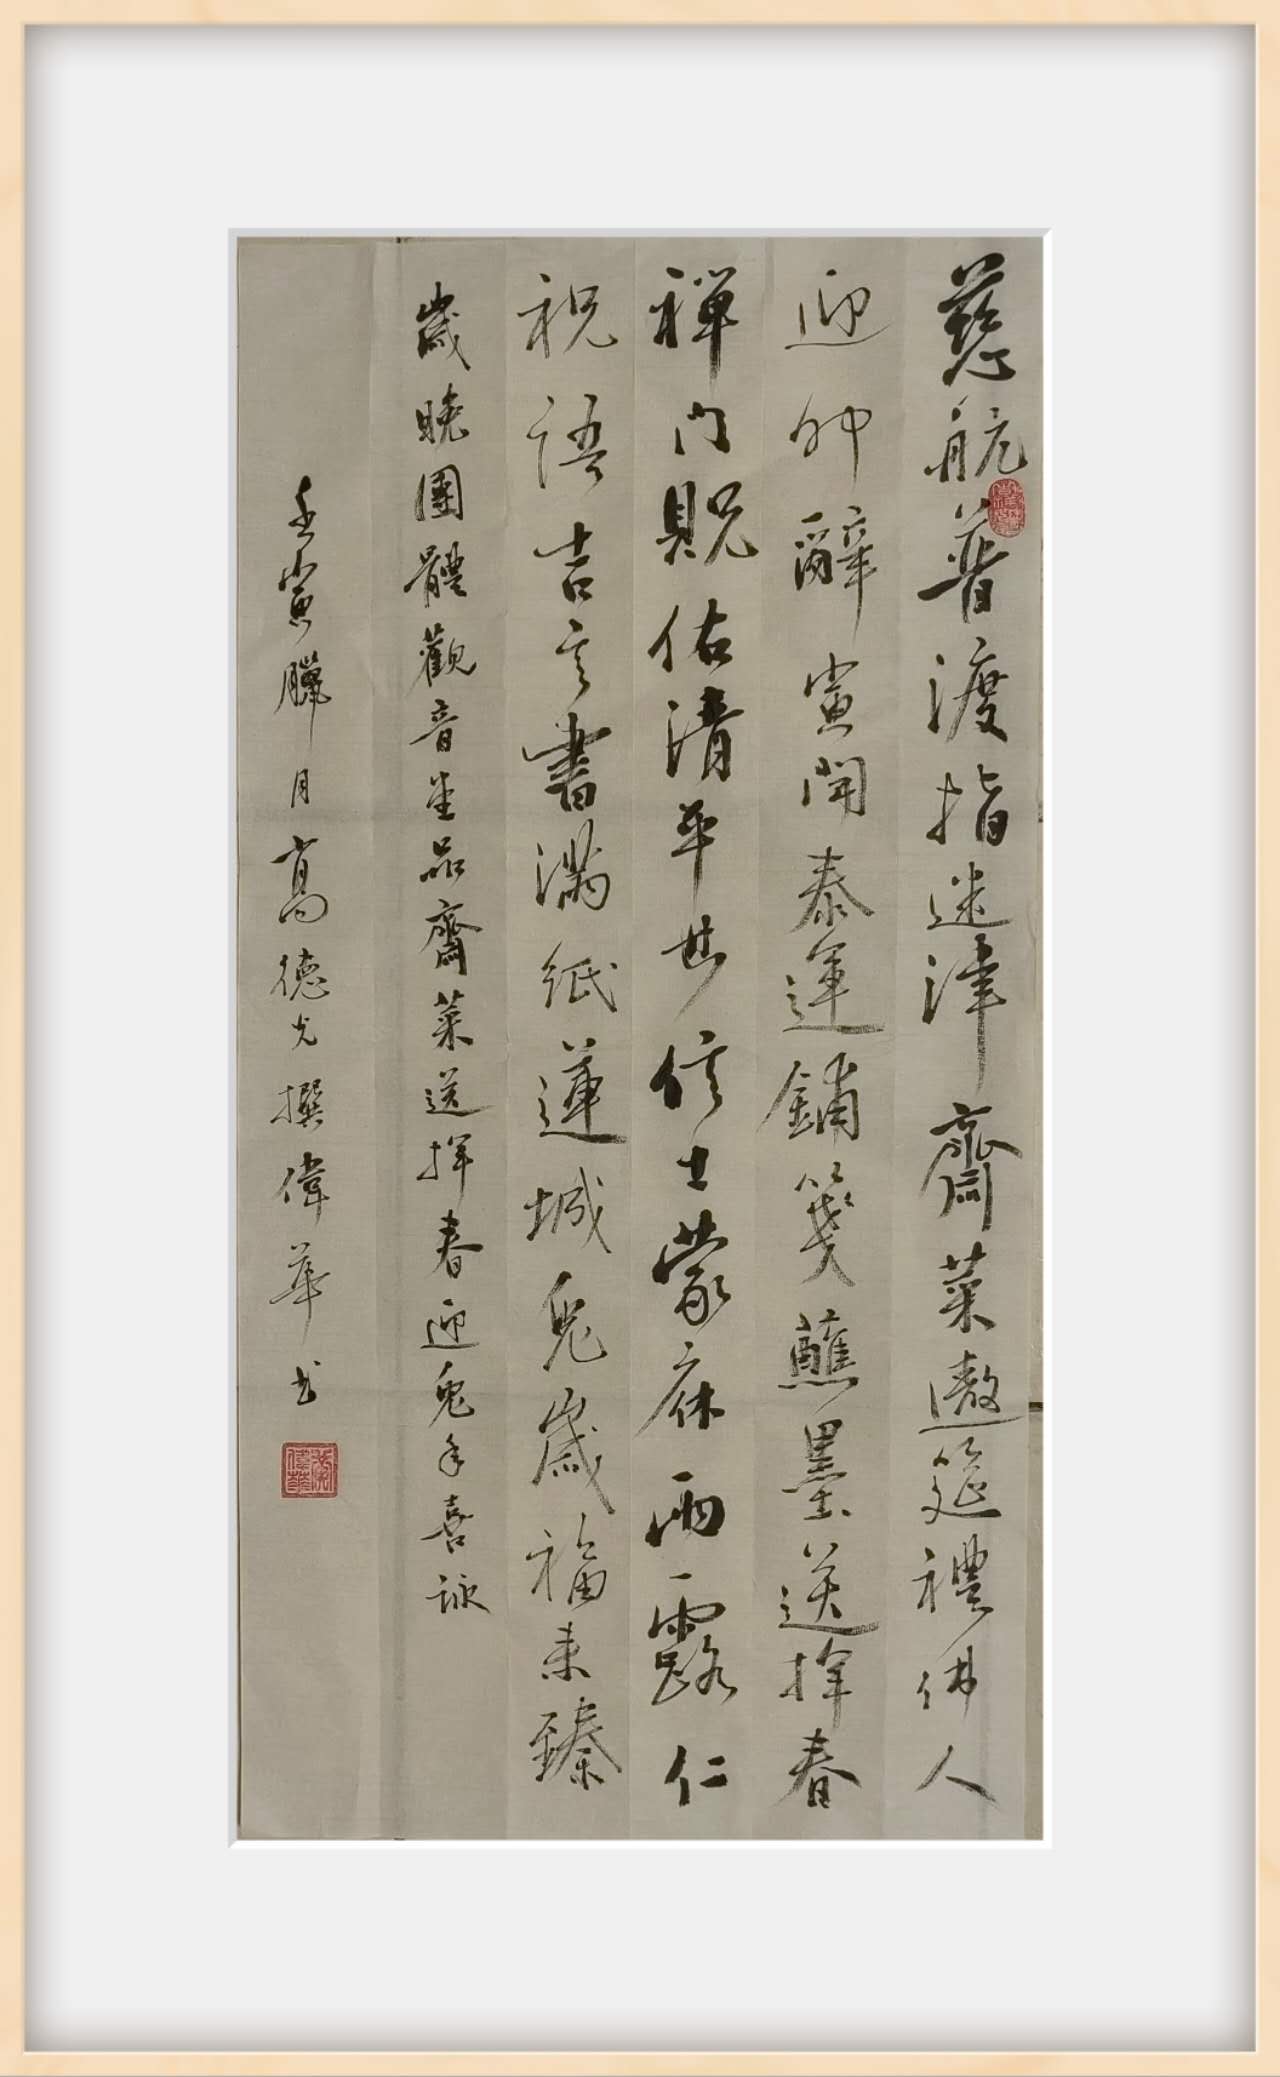 慈航普渡指迷津齋菜遨筵禮佛人
迎卯辭寅開泰運鋪箋蘸墨送揮春
禪門貺佑清平世信士蒙庥雨露仁
祝語吉言書滿紙蓮城兔歲福来臻
歲晚團體觀音堂品齋菜送揮春迎兔年喜詠
壬寅臘月高德光撰偉華书